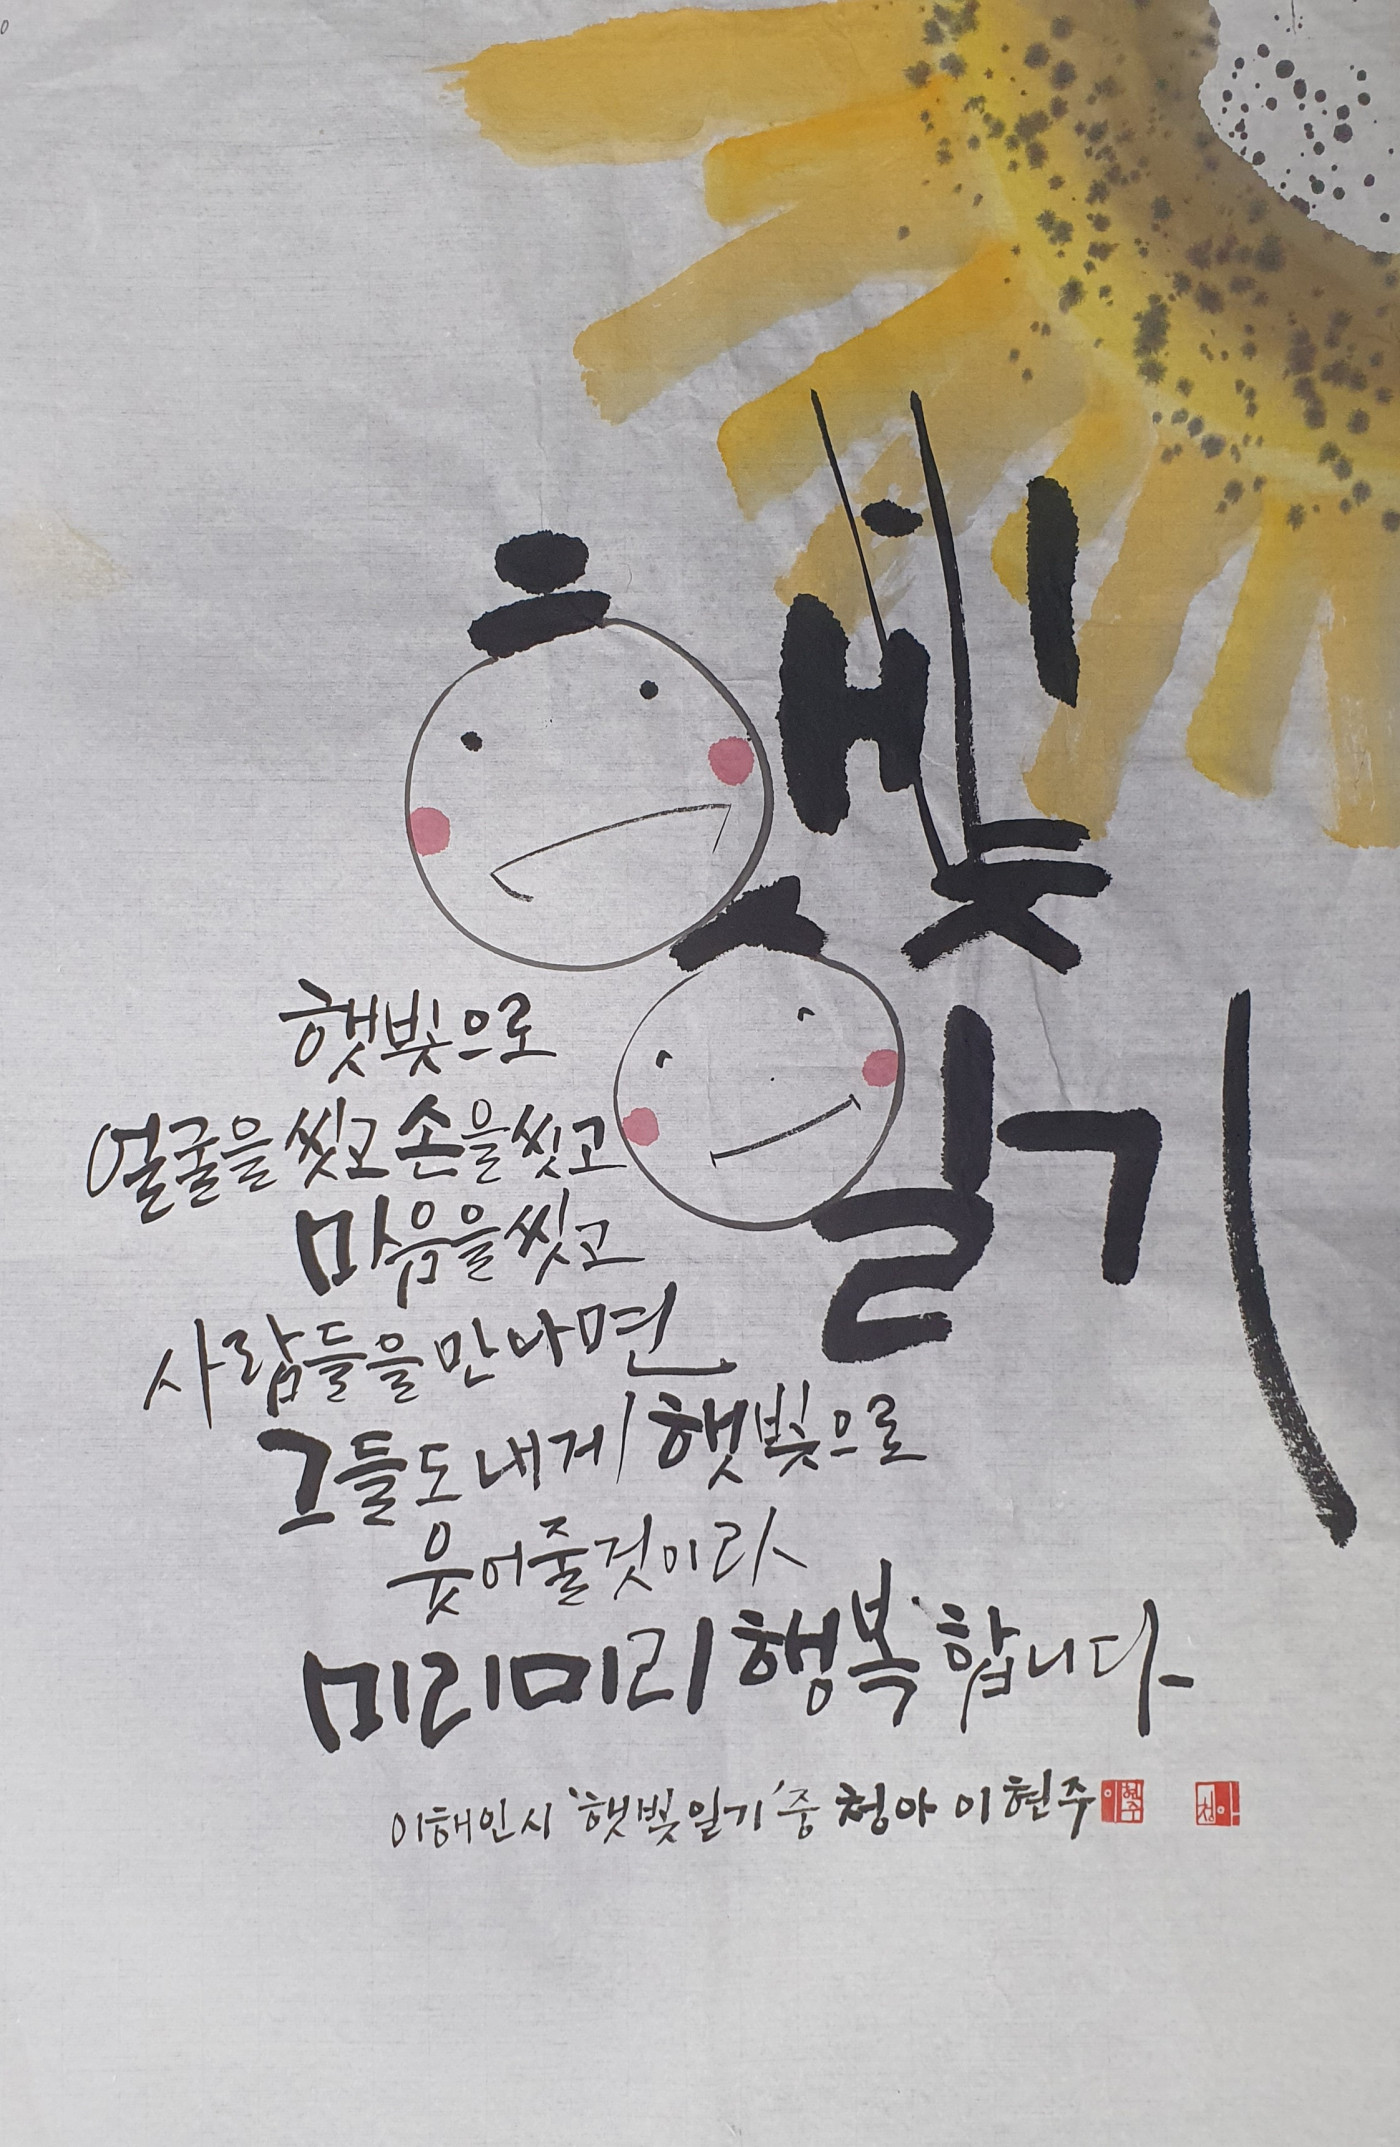 햇빛
일기
햇빛으로
얼굴을 씻고 손을 씻고
마음을 씻고
사람들을 만나면
그들도 내게 햇빛으로
웃어줄것이라
미리미리 행복합니다
이해인시 '햇빛일기'중 청야 이현주
이현주
청야